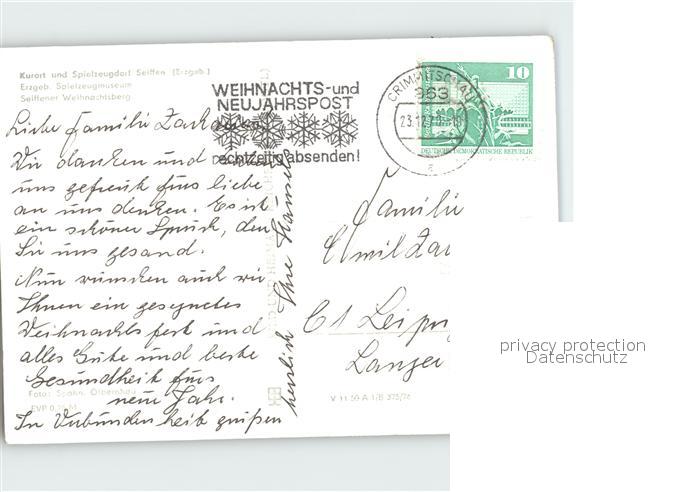 Kurort und Spielzeugdorf Seiffen (Erzgeb.)
Erzgeb. Spielzeugmuseum
Seiffener Weihnachtsberg
WEIHNACHTS-und
NEUJAHRSPOST
rechtzeitig absenden!
CRIMMITSCHAU
963
23.12.
10
DEUTSCHE DEMOKRATISCHE REPUBLIK
Liebe Familie
Wir danken und
uns gefreut fürs liebe
an uns denken. Es ist
ein schöner Spruch, den
Sie uns gesand.
Nun wünschen auch wir
Ihnen ein gesegnetes
Weihnachtsfest und
alles Gute und beste
Gesundheit fürs
neue Jahr.
In Verbundenheit grüßen
herzlich Ihre
Familie
Emil
C1 Leipzig
Langer
Foto: Spahn, Olbernhau
EVP 0,20 M
V 11 50 A 1/B 375/76
privacy protection
Datenschutz